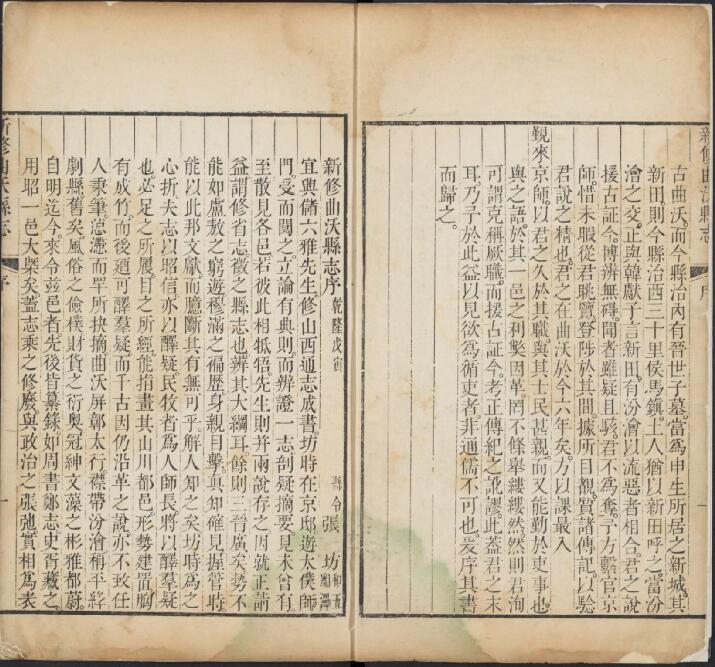 新修曲沃縣志
序
古曲沃而今縣治內有晉世子墓當爲申生所居之新城其
新田則今縣治西三十里侯馬鎮土人猶以新田呼之當汾
澮之交正與韓獻子言新田有汾澮以流惡者相合君之說
援古証今博辨無碍聞者雖疑且駭君不爲奪予方繫官京
師惜未暇從君眺覽登陟於其間據所目覩質諸傳記以驗
君說之精也君之在曲沃於今六年矣方以課最入
覲來京師以君之久於其職與其士民甚親而又能勤於吏事也
與之語於其一邑之利獘因革罔不條舉縷縷然然則君洵
可謂克稱厥職而援古証今考正傳紀之訛謬此蓋君之末
耳乃予於此益以見欲爲循吏者非通儒不可也爰序其書
而歸之
新修曲沃縣志序 乾隆戊寅
縣令張坊
宜興儲六雅先生修山西通志成書坊時在京邸遊太僕師
門受而閱之立論有典則而辨證一志剖疑摘要見未曾有
至散見各邑若彼此相牴牾先生則并兩說存之因就正請
益謂修省志徵之縣志也辨其大綱耳餘則三晉廣矣勢不
能如盧敖之窮遊穆滿之徧歷身親目擊真知確見握管時
能以此邦文獻而臆斷其有無可乎解人知之矣坊時爲之
心折夫志以昭信亦以釋疑民牧者爲人師長將以釋羣疑
也必足之所履目之所經能指畫其山川都邑形勢建置胸
有成竹而後廼可釋羣疑而千古因仍沿革之說亦不致任
人秉筆懣懣而罕所抉摘曲沃屏鄣太行襟帶汾澮稱平絳
劇縣舊矣風俗之儉樸財貨之衍奧冠紳文藻之彬雅都蔚
自明迄今來令茲邑者先後皆纂錄如周書鄭志史胥藏之
用昭一邑大槩矣蓋志乘之修廢與政治之張弛實相爲表
新修曲沃縣志
序
一